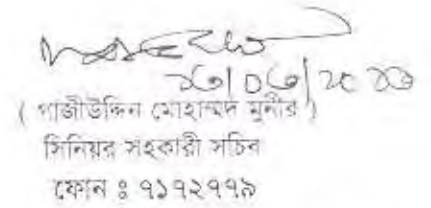 ( গাজীউদ্দিন মোহাম্মদ মুনীর )
সিনিয়র সহকারী সচিব
ফোন ঃ ৭১৭২৭৭৯